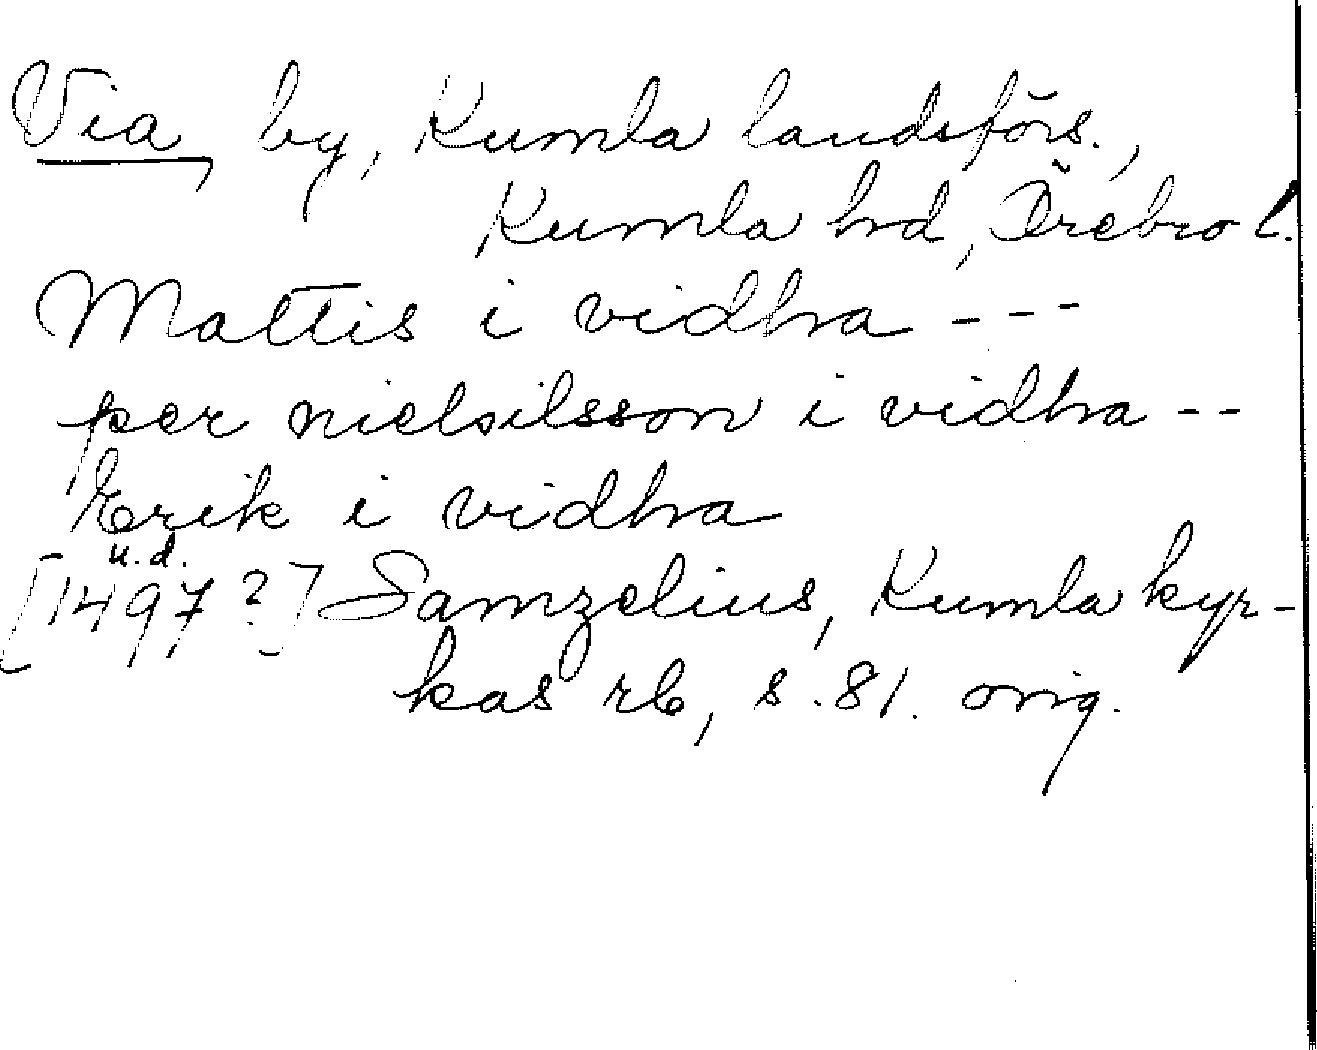 Via, by, Kumla landsförs.,
Kumla hd, Örebro l.
Mattis i vidhra ---
per nielsilsson i vidhra --
Erik i vidhra
u.d.
[1497?] Samzelius, Kumla kyr-
kas rb, s. 81. orig.